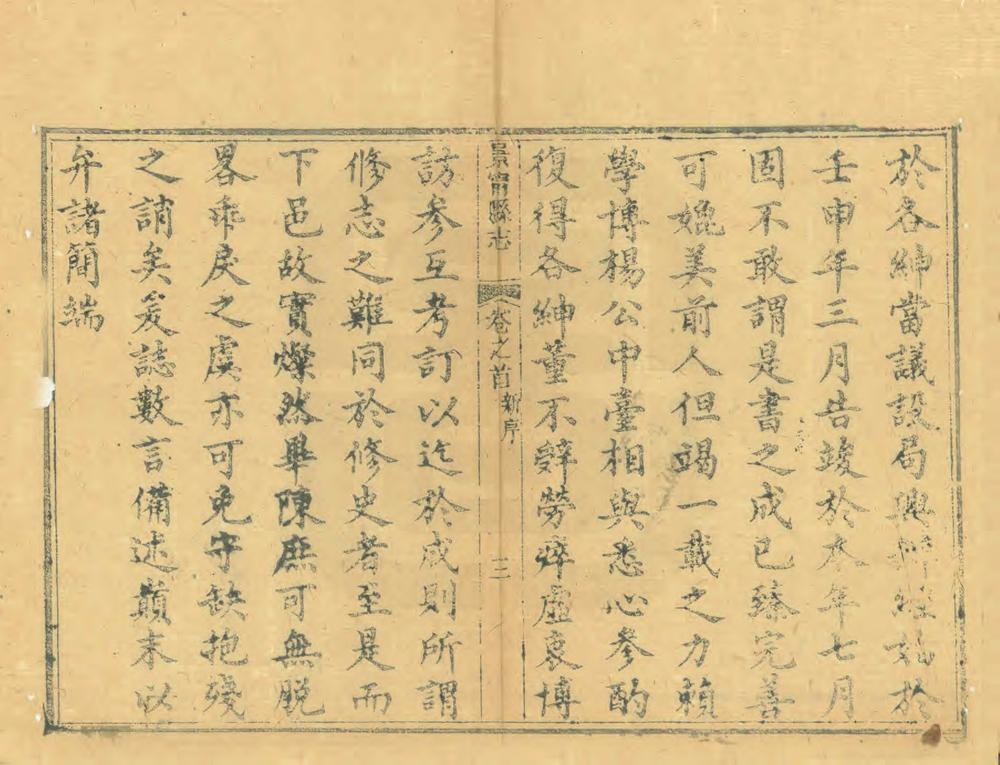 於各紳當議設局興辦經始於
壬申年三月告竣於本年七月
固不敢謂是書之成已臻完善
可媲美前人但竭一載之力賴
學博楊公中臺相與悉心參酌
復得各紳董不辭勞瘁虛衷博
景甯縣志 卷之首 新序 三
訪參互考訂以迄於成則所謂
修志之難同於修史者至是而
下邑故實燦然畢陳庶可無脫
畧乖戾之虞亦可免守缺抱殘
之誚矣爰誌數言備述顛末以
弁諸簡端